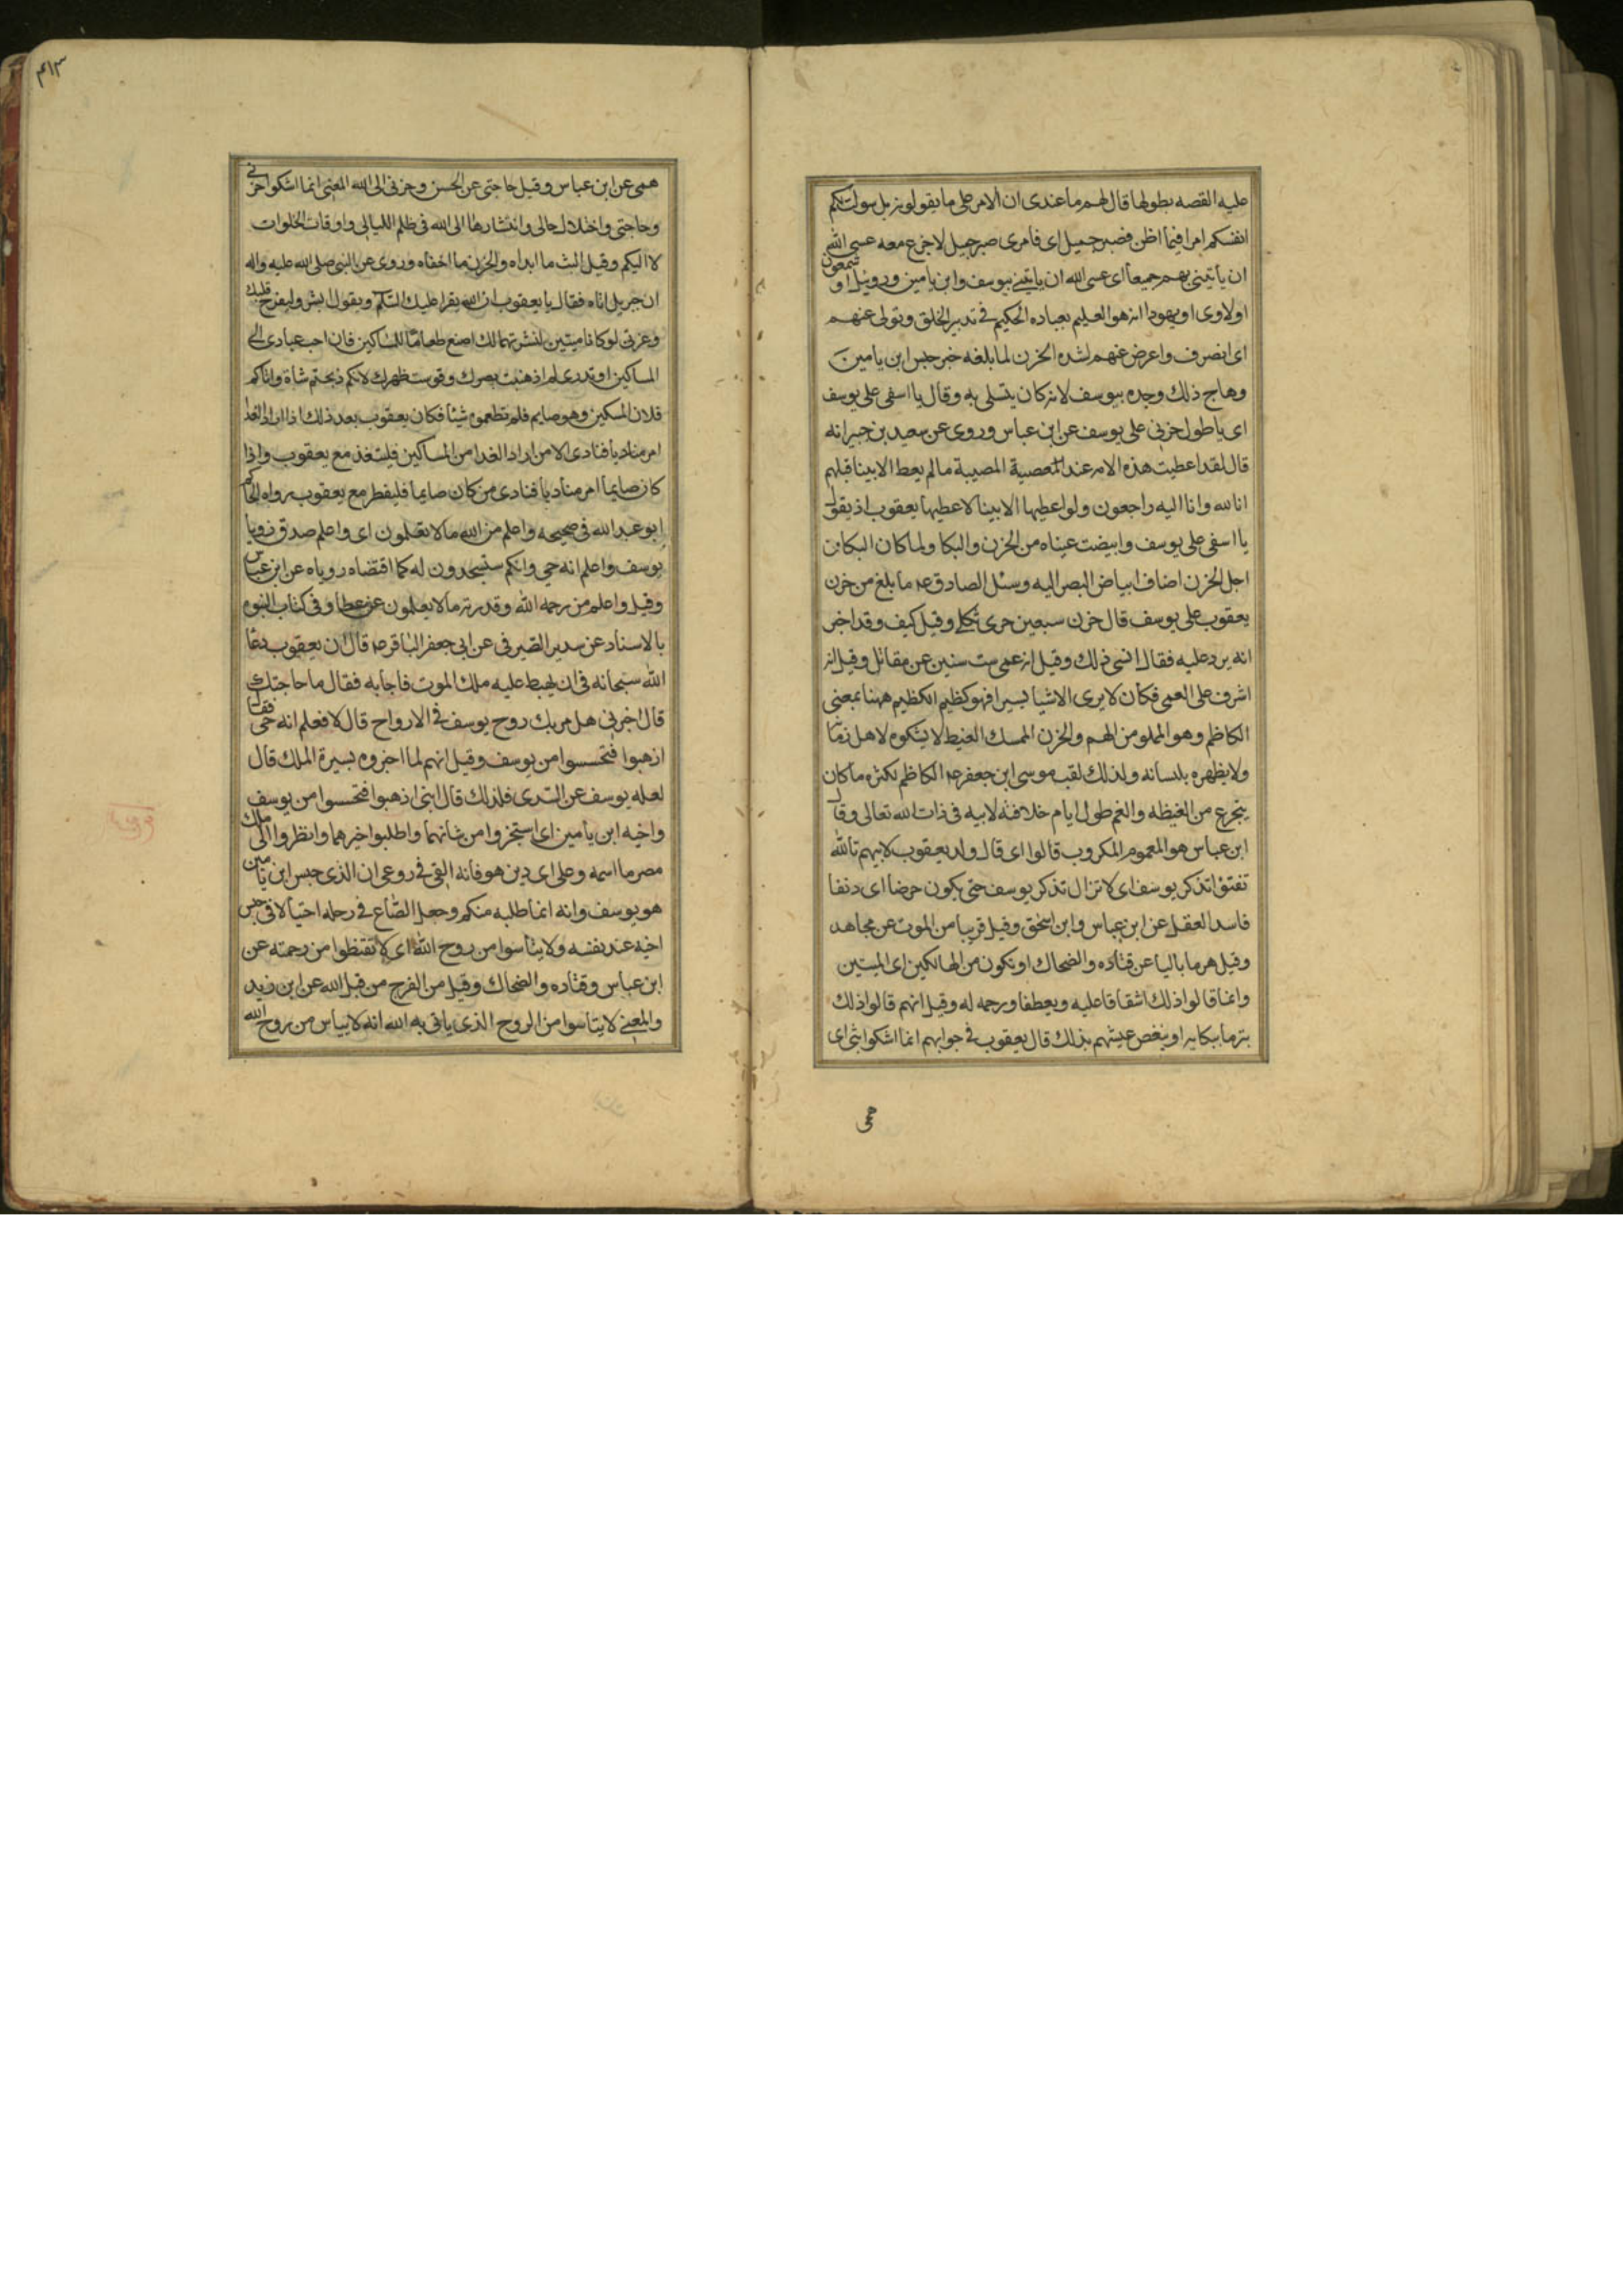 عليه القصه بطولها قال لهم ما عندى ان الامر على ما يقولونه بل سولت لكم
انفسكم امرا فيما اظن فصبر جميل اى فامرى صبر جميل لا جزع معه عسى الله
ان ياتينى بهم جميعا اى عسى الله ان ياتينى بيوسف وابن يامين وروبيل او شمعون
او لاوى او يهودا انه هو العليم بعباده الحكيم فى تدبير الخلق وتولى عنهم
اى انصرف واعرض عنهم لشده الحزن لما بلغه خبر حبس ابن يامين
وهاج ذلك وجده بيوسف لانه كان يتسلى به وقال يا اسفى على يوسف
اى يا طول حزنى على يوسف عن ابن عباس وروى عن سعيد بن جبير انه
قال لقد اعطيت هذه الامه عند المصيبة ما لم يعط الانبيا قبلهم
انا لله وانا اليه راجعون ولو اعطيها الانبيا لاعطيها يعقوب اذ يقول
يا اسفى على يوسف وابيضت عيناه من الحزن والبكا ولما كان البكا من
اجل الحزن اضاف ابياض البصر اليه وسئل الصادق عم ما بلغ من حزن
يعقوب على يوسف قال حزن سبعين حرى ثكلى وقيل كيف وقد اخبر
انه يرد عليه فقال انسى ذلك وقيل انه عمى ست سنين عن مقاتل وقيل انه
اشرف على العمى فكان لا يرى الاشيا يسيرا فهو كظيم الكظيم ههنا بمعنى
الكاظم وهو المملو من الهم والحزن الممسك الغيظ لا يشكوه لاهل زمانه
ولا يظهره بلسانه ولذلك لقب موسى ابن جعفر عم الكاظم لكثره ما كان
يتجرع من الغيظه والغم طول ايام خلافته لابيه فى ذات الله تعالى وقال
ابن عباس هو المغموم المكروب قالوا اى قال ولد يعقوب لابيهم تالله
تفتؤا تذكر يوسف اى لا تزال تذكر يوسف حتى يكون حرضا اى دنفا
فاسد العقل عن ابن عباس وابن اسحق وقيل قريبا من الموت عن مجاهد
وقيل هرما باليا عن قتاده والضحاك او تكون من الهالكين اى الميتين
وانما قالوا ذلك اشفاقا عليه وتعطفا ورحمه له وقيل انهم قالوا ذلك
تبرما ببكايه او ينغص عيشهم بذلك قال يعقوب فى جوابهم انما اشكوا بثى اى
همى
٤١٣
همى عن ابن عباس وقيل حاجتى عن الحسن وحزنى الى الله المعنى انما اشكوا حزنى
وحاجتى واختلال حالى وانتشارها الى الله فى ظلم الليالى واوقات الخلوات
لا اليكم وقيل البث ما ابداه والحزن ما اخفاه وروى عن النبى صلى الله عليه واله
ان جبريل اتاه فقال يا يعقوب ان الله يقرا عليك السلام ويقول ابشر وليفرح قلبك
وعزتى لو كانا ميتين لنشرتهما لك اصنع طعاما للمساكين فان احب عبادى الى
المساكين او تدرى لم اذهبت بصرك وقوست ظهرك لانكم ذبحتم شاة واتاكم
فلان المسكين وهو صايم فلم تطعموه شيئا فكان يعقوب بعد ذلك اذا اراد الغدا
امر مناديا فنادى الا من اراد الغدا من المساكين فليتغذ مع يعقوب واذا
كان صايما امر مناديا فنادى من كان صايما فليفطر مع يعقوب رواه الحاكم
ابو عبد الله فى صحيحه واعلم من الله ما لا تعلمون اى واعلم صدق رويا
يوسف واعلم انه حى وانكم ستسجدون له كما اقتضاه روياه عن ابن عباس
وقيل واعلم من رحمه الله وقدرته ما لا يعلمون عن عطا وفى كتاب النبوه
بالاسناد عن سدير الصيرفى عن ابى جعفر الباقر عم قال ان يعقوب دعا
الله سبحانه فى ان يهبط عليه ملك الموت فاجابه فقال ما حاجتك
قال اخبرنى هل مر بك روح يوسف فى الارواح قال لا فعلم انه حى فقال
اذهبوا فتحسسوا من يوسف وقيل انهم لما اخبروه بسيرة الملك قال
لعله يوسف عن السدى فلذلك قال ابنى اذهبوا فتحسسوا من يوسف
واخيه ابن يامين اى استخبروا من شانهما واطلبوا خبرهما وانظروا الى ملك
مصر ما اسمه وعلى اى دين هو فانه القى فى روعى ان الذى حبس ابن يامين
هو يوسف وانه انما طلبه منكم وجعل الصاع فى رحله احتيالا فى حبس
اخيه عند نفسه ولا يياسوا من روح الله اى لا تقنطوا من رحمته عن
ابن عباس وقتاده والضحاك وقيل من الفرج من قبل الله عن ابن زيد
والمعنى لا يتاسوا من الروح الذى ياتى به الله انه لا يياس من روح الله